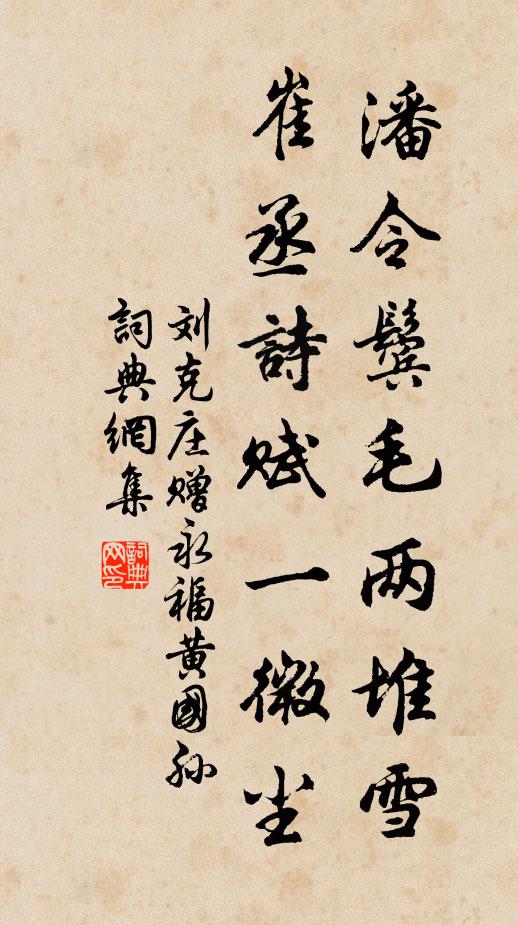 潘令鬓毛两堆雪
崔丞詩赋一微尘
刘克庄赠永福黄國孙
詞典網集
詞典网印